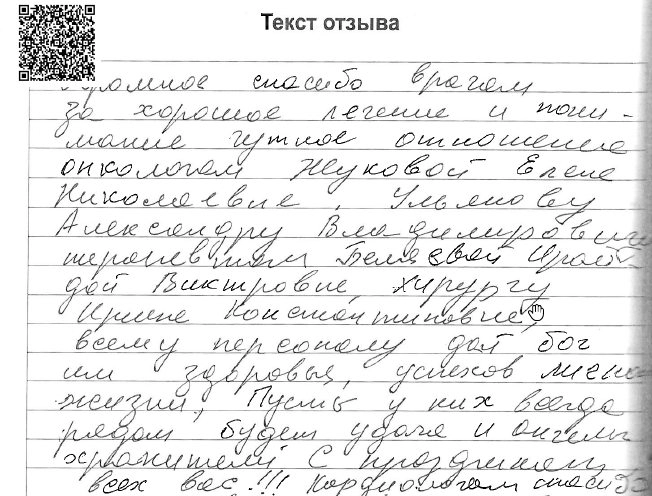 Текст отзыва
Огромное спасибо врачам
за хорошое лечение и пони-
мание чуткое отношение
онкологам Жуковой Елене
Николаевне, Ульянову
Александру Владимирович
терапевтам Беляевой Ираи-
дой Викторовне, хирургу
Ирине Константиновне,
всему персоналу дай бог
им здоровья, успехов
жизни, Пусть у них всегда
рядом будет удача и ангелы
хранители С праздником
всех вас!!! Кардиологам спасибо